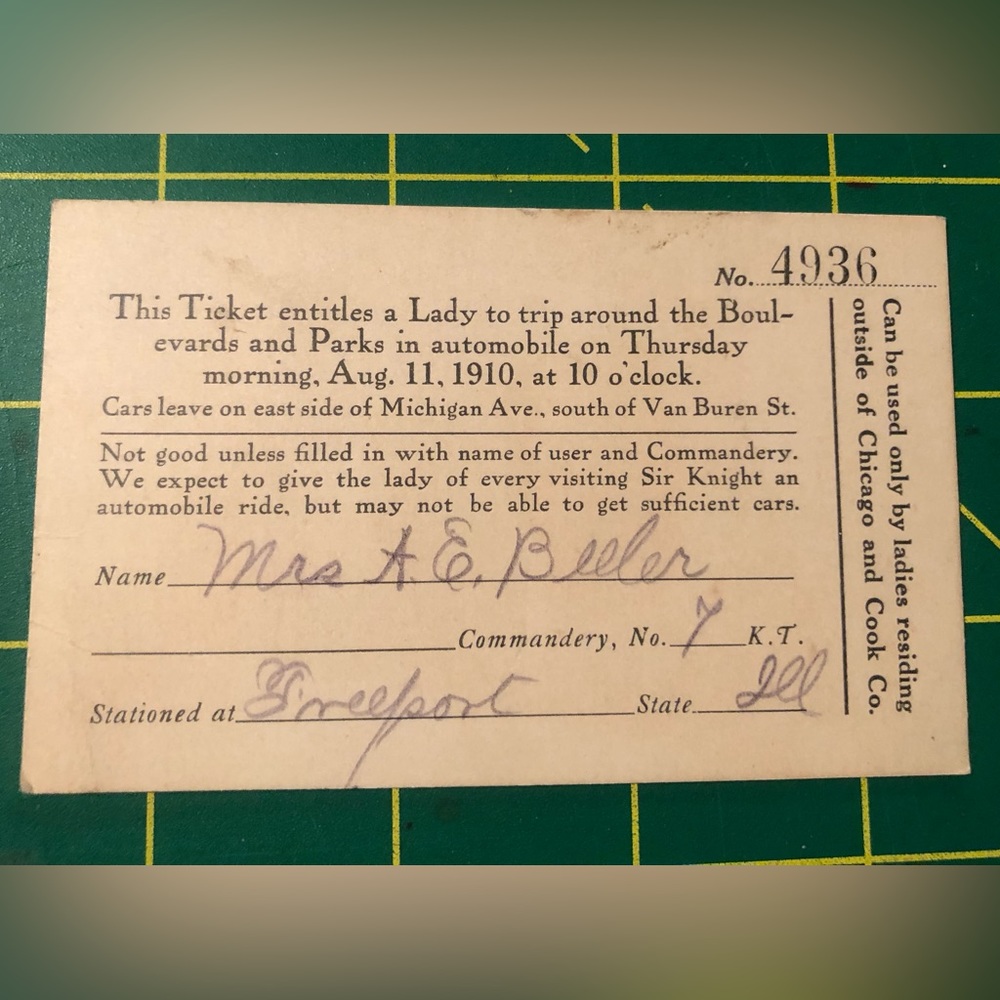 No. 4936
This Ticket entitles a Lady to trip around the Boul-
evards and Parks in automobile on Thursday
morning, Aug. 11, 1910, at 10 o'clock.
Cars leave on east side of Michigan Ave., south of Van Buren St.
Not good unless filled in with name of user and Commandery.
We expect to give the lady of every visiting Sir Knight an
automobile ride, but may not be able to get sufficient cars.
Name Mrs A. E. Beeler
Commandery, No. 7 K.T.
Stationed at Freeport State Ill
Can be used only by ladies residing
outside of Chicago and Cook Co.